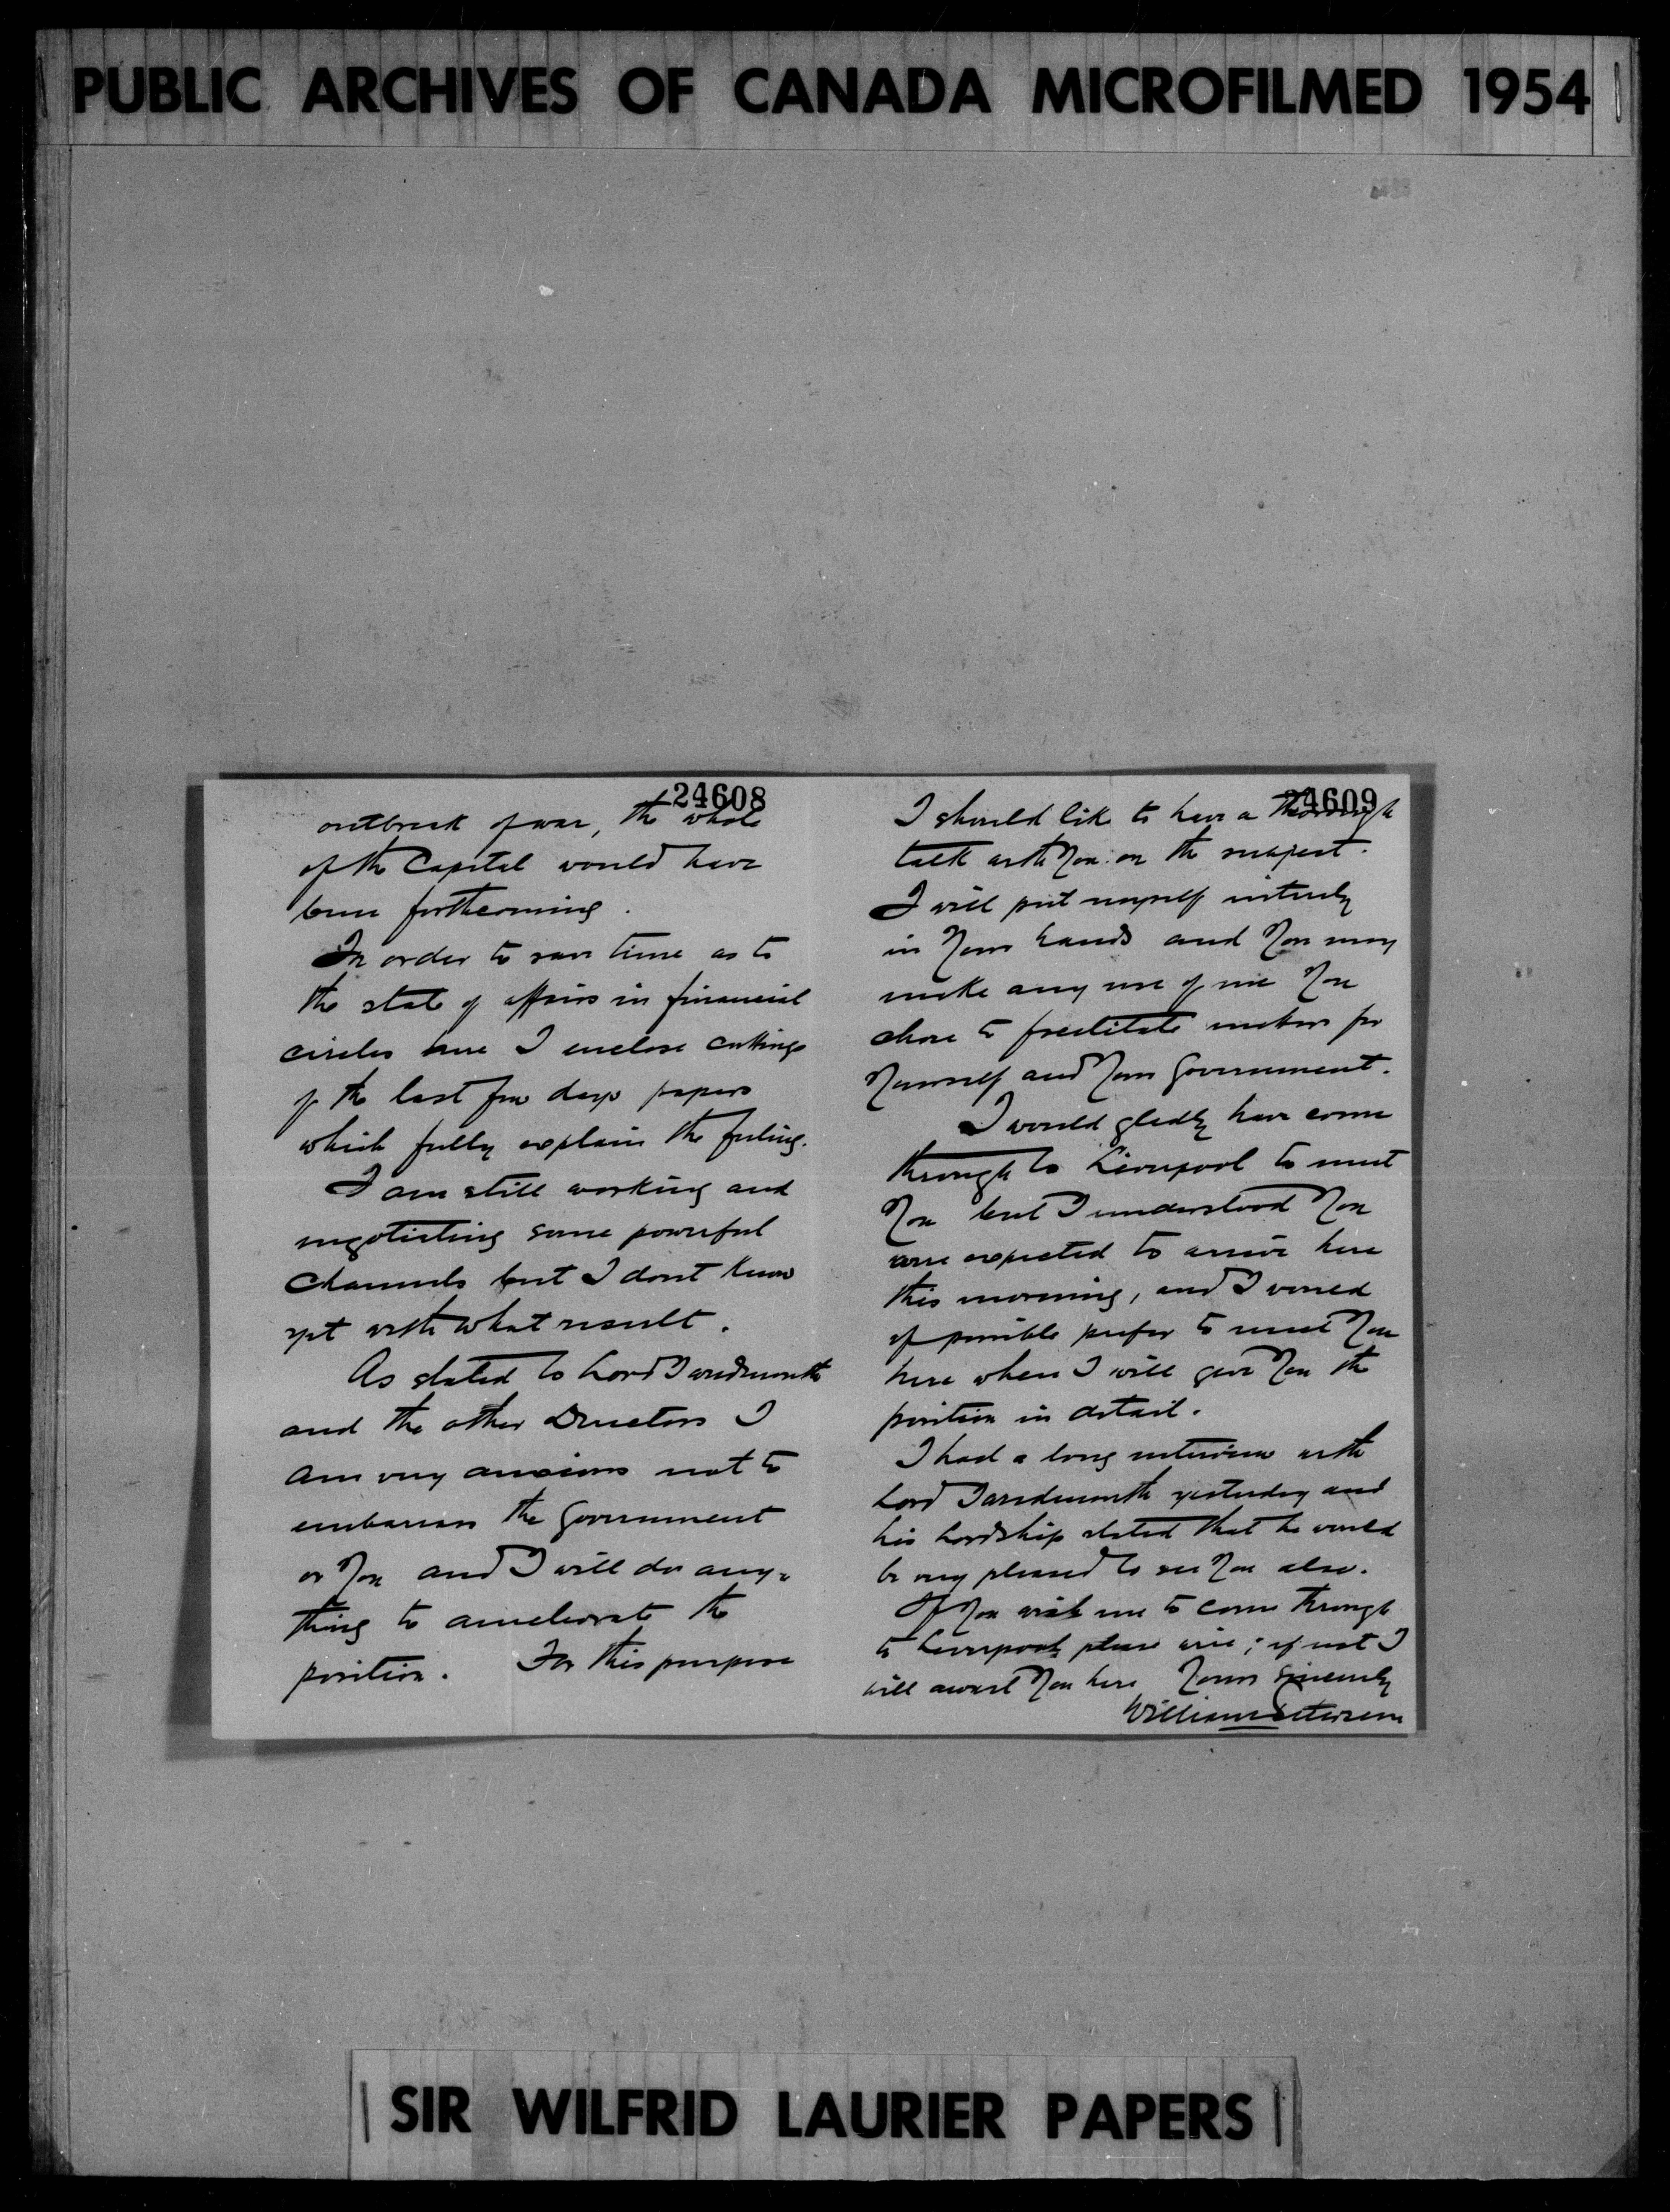 PUBLIC ARCHIVES OF CANADA MICROFILMED 1954
24608
outbreak of war, the whole
of the Capital would have
been forthcoming.
In order to save time as to
the state of affairs in financial
circles here I enclose cuttings
of the last few days papers
which fully explain the feeling.
I am still working and
negotiating some powerful
Channels but I dont know
yet with what result.
As stated to Lord Tweedmouth
and the other Directors I
am very anxious not to
embarrass the Government
or You and I will do any-
thing to ameliorate the
position. For this purpose
24609
I should like to have a thorough
talk with You on the subject.
I will put myself entirely
in Your hands and You may
make any use of me You
chose to facilitate matters for
Yourself and Your Government.
I would gladly have come
through to Liverpool to meet
You but I understood You
were expected to arrive here
this morning, and I would
if possible prefer to meet You
here when I will give You the
position in detail.
I had a long interview with
Lord Tweedmouth yesterday and
his Lordship stated that he would
be very pleased to see You also.
If You wish me to come through
to Liverpool, please wire; if not I
will await You here Yours Sincerely
William Petersen
SIR WILFRID LAURIER PAPERS